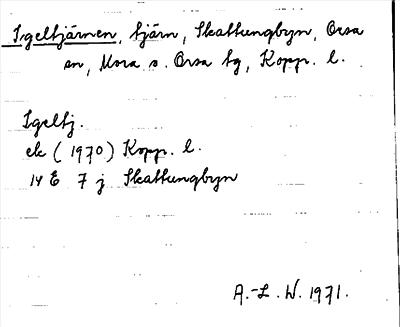 Igeltjärnen, tjärn, Skattungbyn, Orsa
sn, Mora o. Orsa tg, Kopp. l.
Igeltj.
ek (1970) Kopp. l.
14 E 7 j Skattungbyn
A.-L. W. 1971.